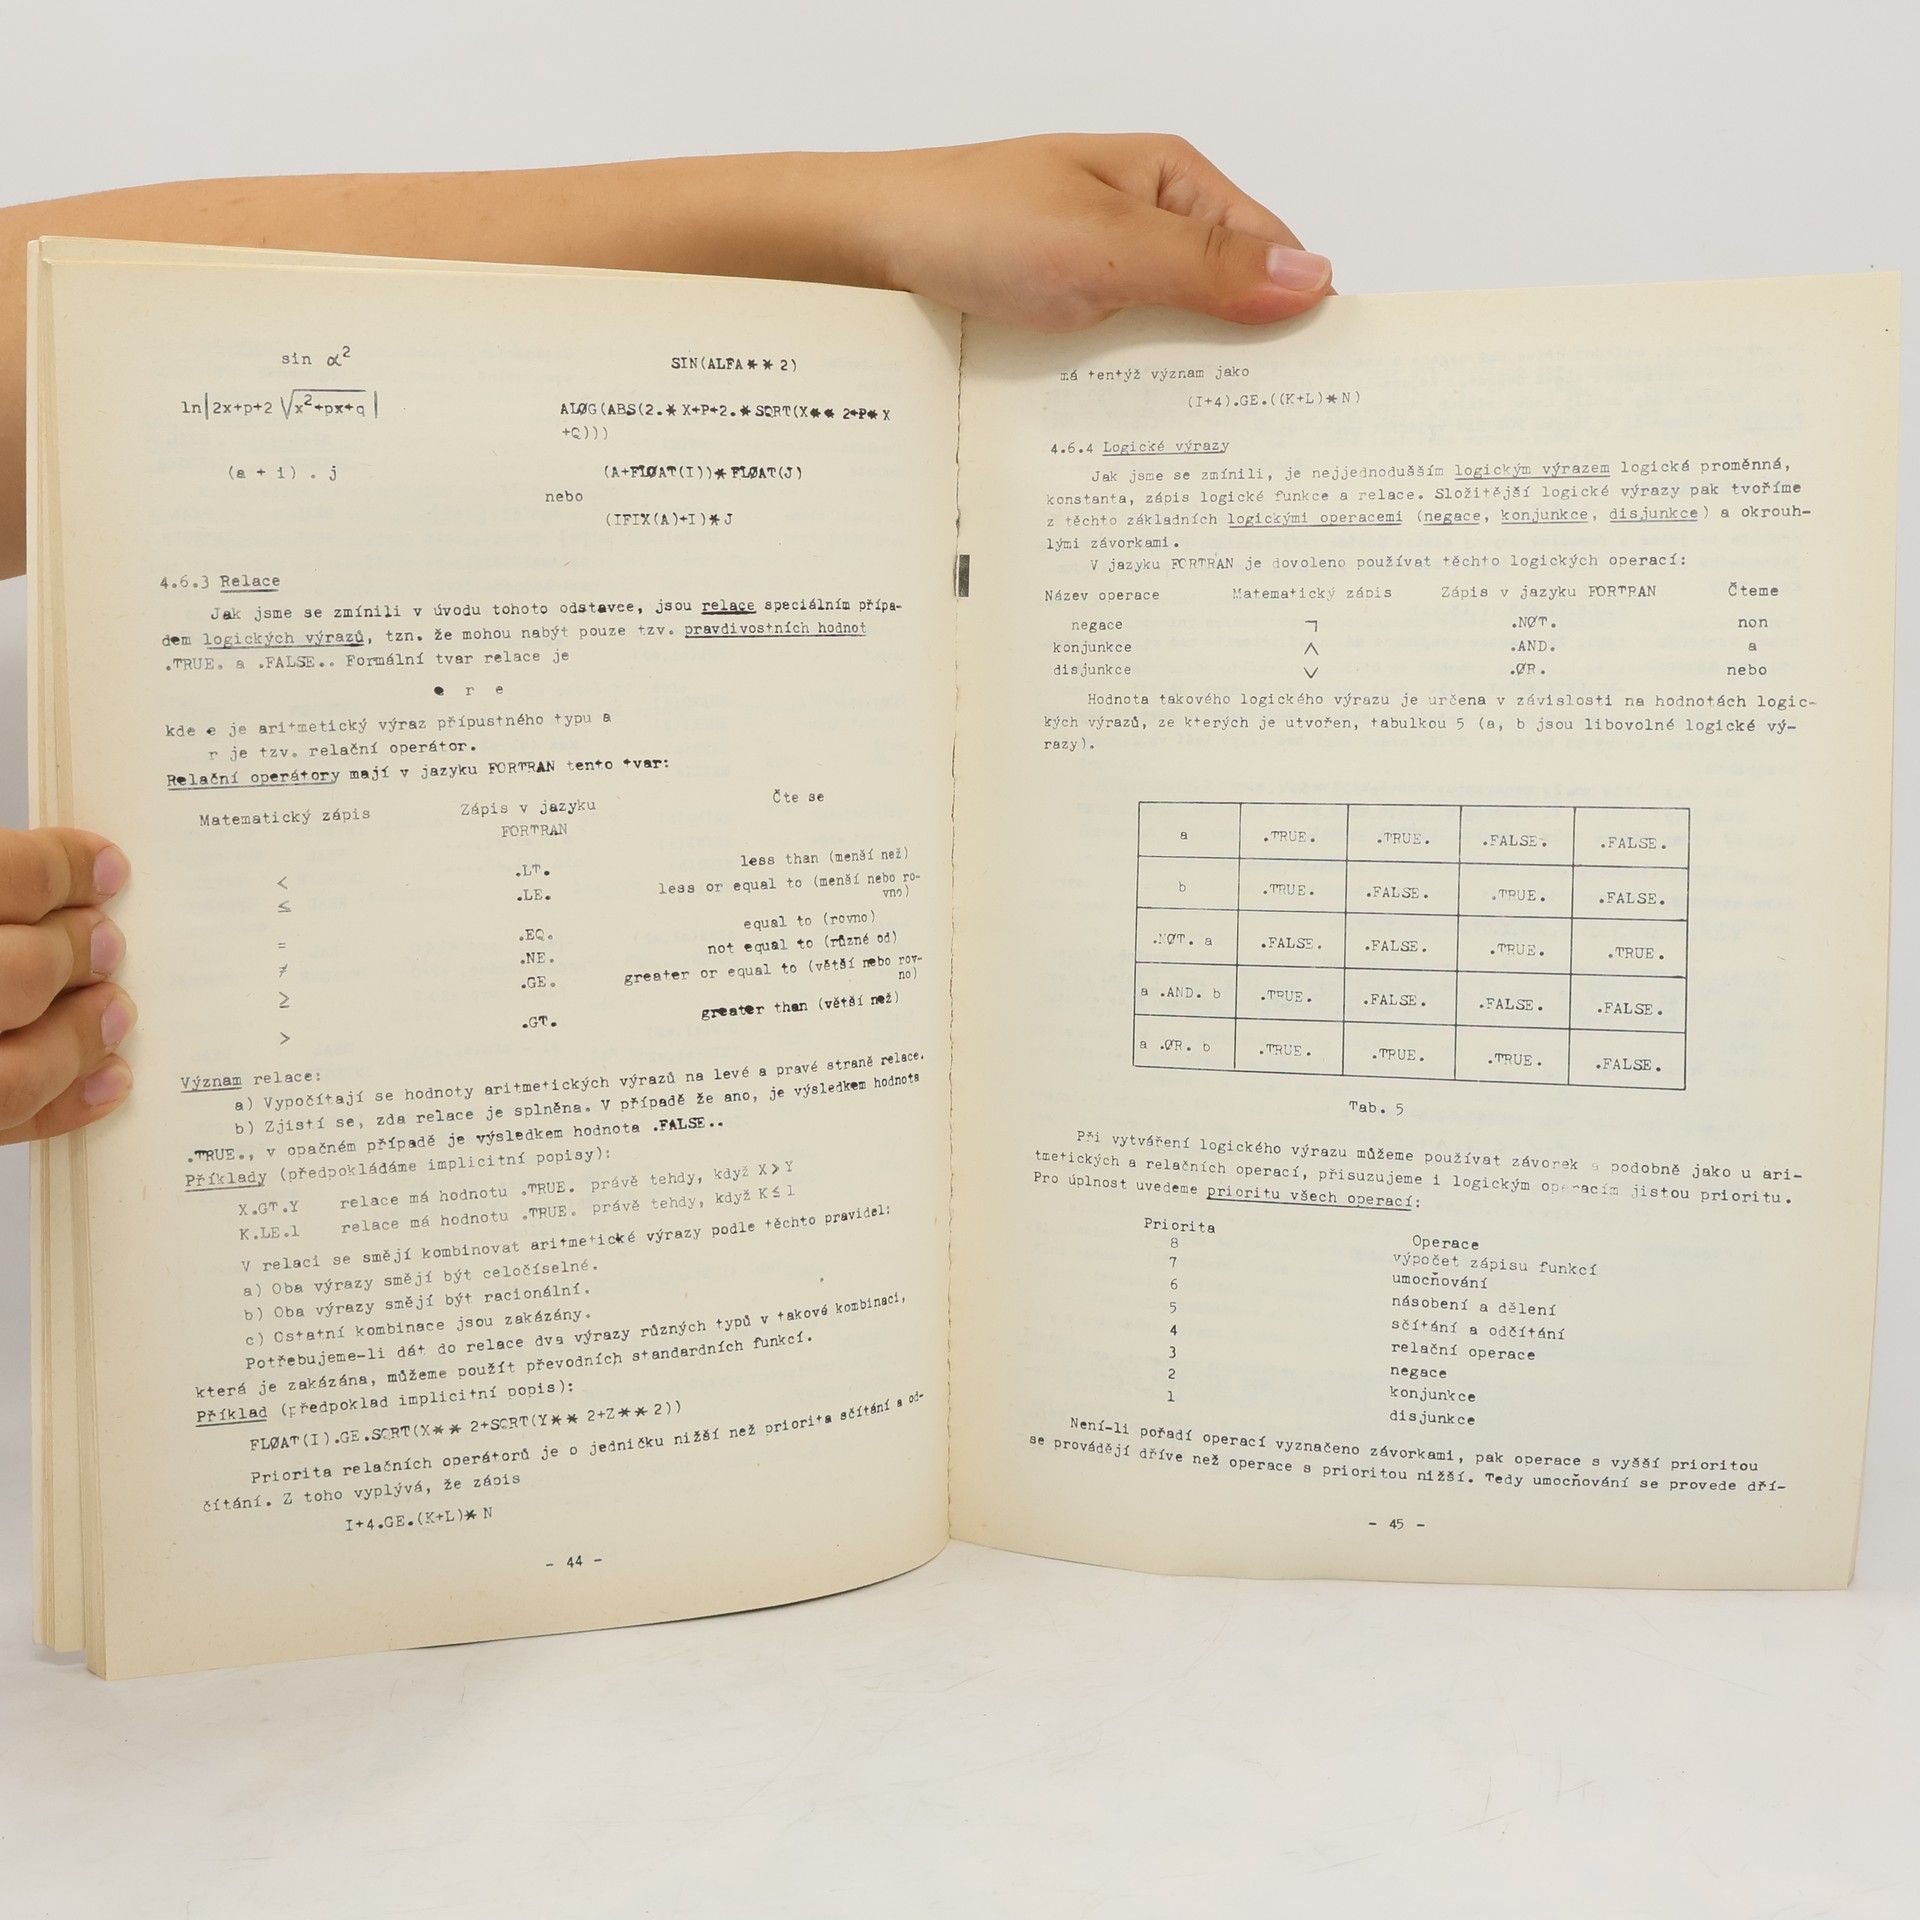 sin α² SIN(ALFA** 2)
ln|2x+p+2 √x²+px+q | ALØG(ABS(2.* X+P+2.* SQRT(X** 2+P* X
+Q)))
(a + i) . j (A+FLØAT(I))* FLØAT(J)
nebo
(IFIX(A)+I)* J
4.6.3 Relace
Jak jsme se zmínili v úvodu tohoto odstavce, jsou relace speciálním přípa-
dem logických výrazů, tzn. že mohou nabýt pouze tzv. pravdivostních hodnot
.TRUE. a .FALSE.. Formální tvar relace je
e r e
kde e je aritmetický výraz přípustného typu a
r je tzv. relační operátor.
Relační operátory mají v jazyku FORTRAN tento tvar:
Matematický zápis Zápis v jazyku Čte se
FORTRAN
< .LT. less than (menší než)
≤ .LE. less or equal to (menší nebo ro-
vno)
= .EQ. equal to (rovno)
≠ .NE. not equal to (různé od)
≥ .GE. greater or equal to (větší nebo rov-
no)
> .GT. greater than (větší než)
Význam relace:
a) Vypočítají se hodnoty aritmetických výrazů na levé a pravé straně relace.
b) Zjistí se, zda relace je splněna. V případě že ano, je výsledkem hodnota
.TRUE., v opačném případě je výsledkem hodnota .FALSE..
Příklady (předpokládáme implicitní popisy):
X.GT.Y relace má hodnotu .TRUE. právě tehdy, když X > Y
K.LE.1 relace má hodnotu .TRUE. právě tehdy, když K ≤ 1
V relaci se smějí kombinovat aritmetické výrazy podle těchto pravidel:
a) Oba výrazy smějí být celočíselné.
b) Oba výrazy smějí být racionální.
c) Ostatní kombinace jsou zakázány.
Potřebujeme-li dát do relace dva výrazy různých typů v takové kombinaci,
která je zakázána, můžeme použít převodních standardních funkcí.
Příklad (předpoklad implicitní popis):
FLØAT(I).GE.SQRT(X** 2+SQRT(Y** 2+Z** 2))
Priorita relačních operátorů je o jedničku nižší než priorita sčítání a od-
čítání. Z toho vyplývá, že zápis
I+4.GE.(K+L)* N
- 44 -
má tentýž význam jako
(I+4).GE.((K+L)* N)
4.6.4 Logické výrazy
Jak jsme se zmínili, je nejjednodušším logickým výrazem logická proměnná,
konstanta, zápis logické funkce a relace. Složitější logické výrazy pak tvoříme
z těchto základních logickými operacemi (negace, konjunkce, disjunkce) a okrouh-
lými závorkami.
V jazyku FORTRAN je dovoleno používat těchto logických operací:
Název operace Matematický zápis Zápis v jazyku FORTRAN Čteme
negace ¬ .NØT. non
konjunkce ∧ .AND. a
disjunkce ∨ .ØR. nebo
Hodnota takového logického výrazu je určena v závislosti na hodnotách logic-
kých výrazů, ze kterých je utvořen, tabulkou 5 (a, b jsou libovolné logické vý-
razy).
a .TRUE. .TRUE. .FALSE. .FALSE.
b .TRUE. .FALSE. .TRUE. .FALSE.
.NØT. a .FALSE. .FALSE. .TRUE. .TRUE.
a .AND. b .TRUE. .FALSE. .FALSE. .FALSE.
a .ØR. b .TRUE. .TRUE. .TRUE. .FALSE.
Tab. 5
Při vytváření logického výrazu můžeme používat závorek a podobně jako u ari-
tmetických a relačních operací, přisuzujeme i logickým operacím jistou prioritu.
Pro úplnost uvedeme prioritu všech operací:
Priorita Operace
8 výpočet zápisu funkcí
7 umocňování
6 násobení a dělení
5 sčítání a odčítání
4 relační operace
3 negace
2 konjunkce
1 disjunkce
Není-li pořadí operací vyznačeno závorkami, pak operace s vyšší prioritou
se provádějí dříve než operace s prioritou nižší. Tedy umocňování se provede dří-
- 45 -